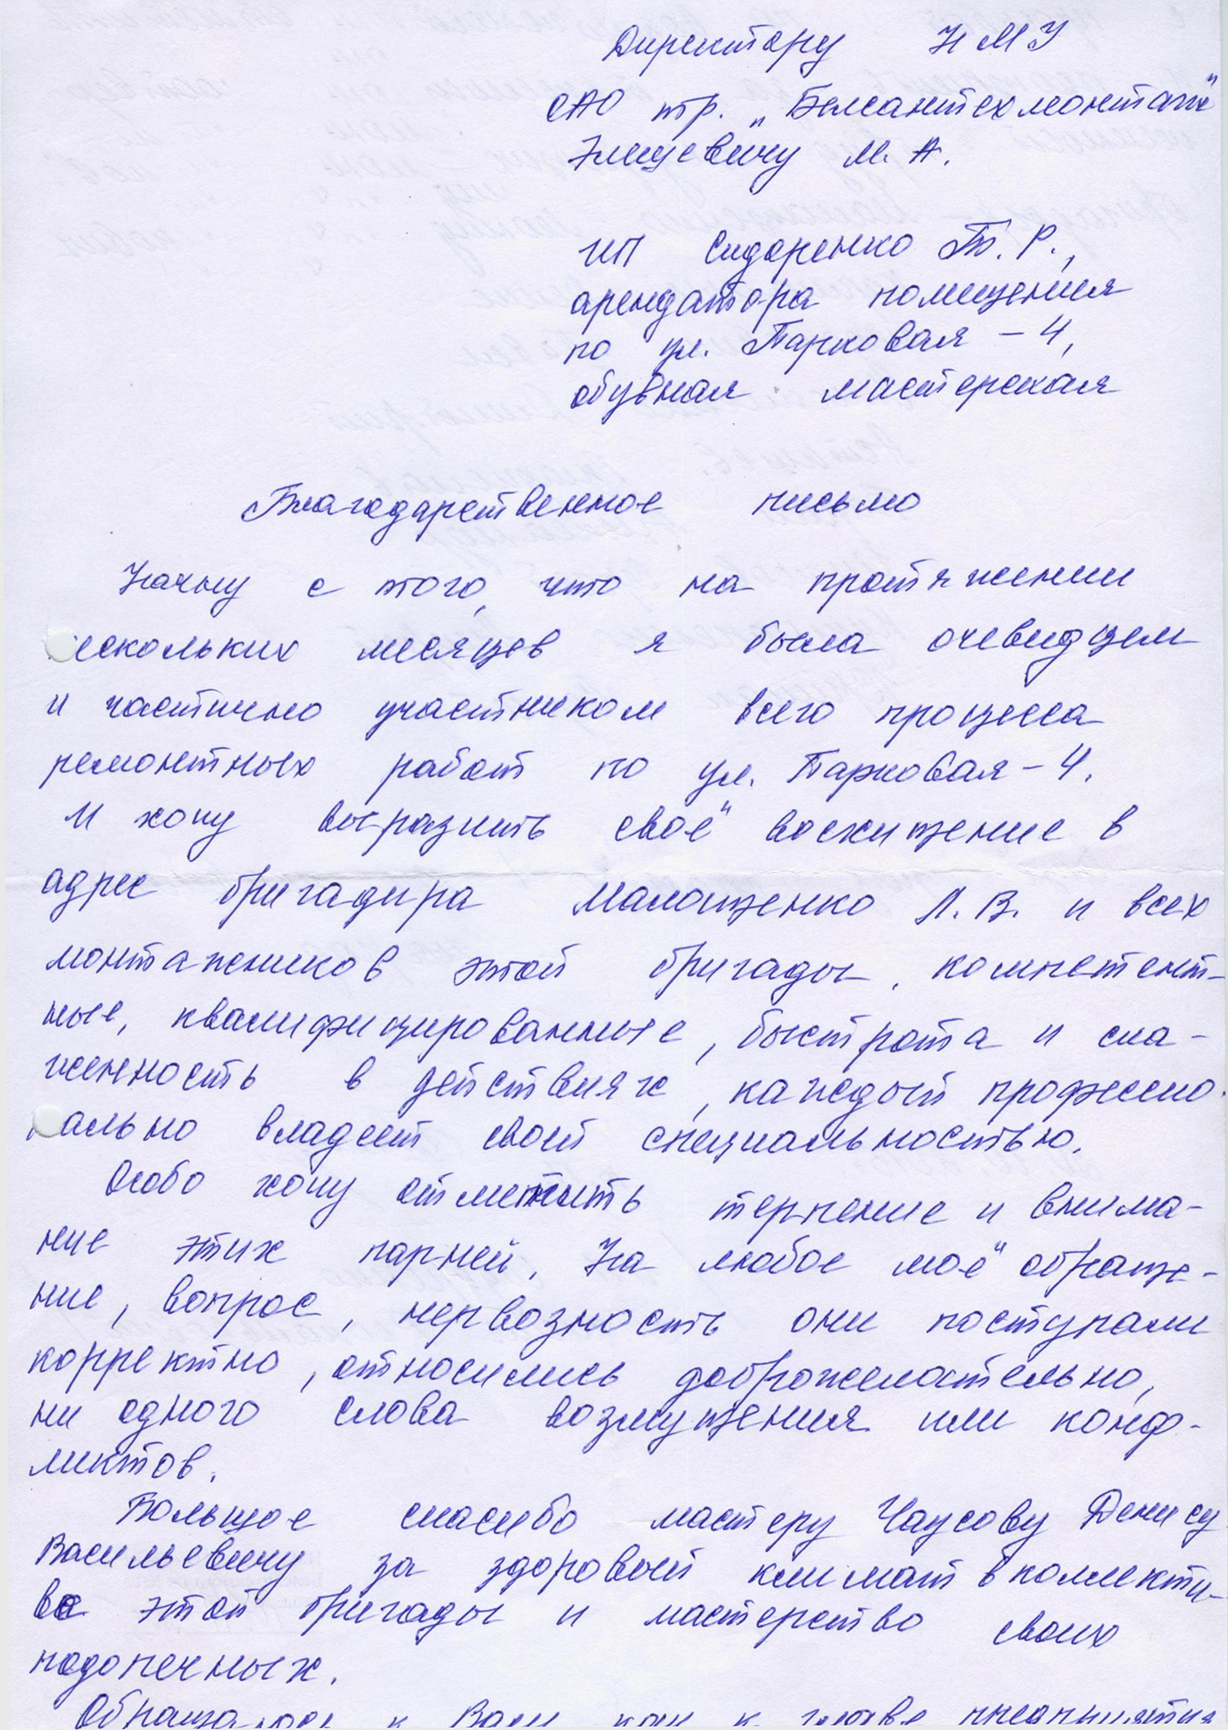 Директору НМУ
ОАО тр. „Белсантехмонтаж"
М. А.
ИП Сидоренко Т. Р.,
арендатора помещения
по ул. Парковая – 4,
обувная мастерская
Благодарственное письмо
Начну с того, что на протяжении
нескольких месяцев я была очевидцем
и частично участником всего процесса
ремонтных работ по ул. Парковая – 4.
И хочу выразить своё восхищение в
адрес бригадира Малащенко Л. В. и всех
монтажников этой бригады, компетент-
ные, квалифицированные, быстрота и сла-
женность в действиях, каждый профессио-
нально владеет своей специальностью.
Особо хочу отметить терпение и внима-
ние этих парней. На любое моё обраще-
ние, вопрос, нервозность они поступали
корректно, относились доброжелательно,
ни одного слова возмущения или конф-
ликтов.
Большое спасибо мастеру Чаусову Денису
Васильевичу за здоровый климат в коллекти-
ве этой бригады и мастерство своих
подопечных.
Обращаюсь к Вам как к главе предприятия